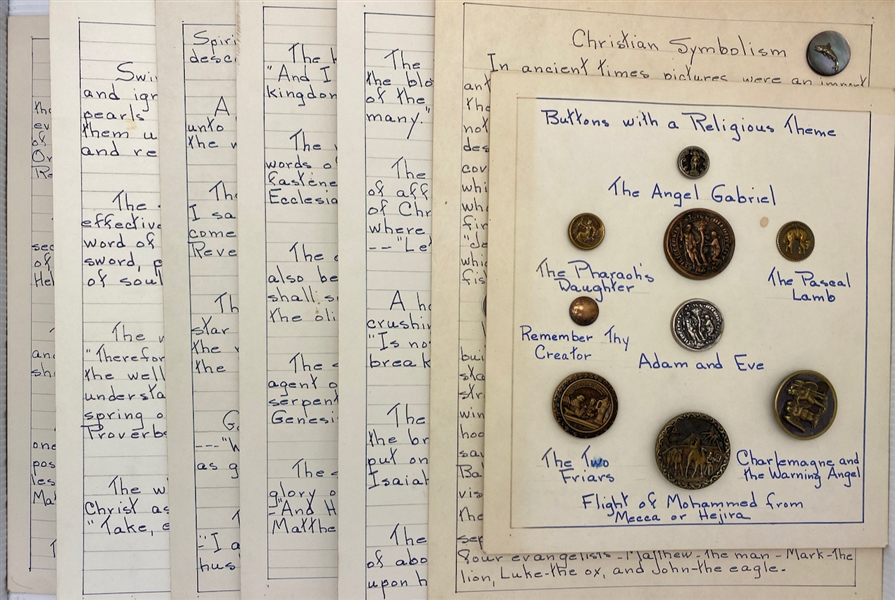 of
of
and
one
Swi
and ig
pearls
them u
and re
The
effective
word of
sword,
of soul
The w
"Therefor
the well
understa
spring o
Proverbs
The w
Christ as
"Take, e
Spiri
desc
A
unto
the w
The
I sa
come
Reve
Th
star
the
the
G
---"W
as g
"I a
hus
The
"And I
kingdom
The
words o
fastene
Ecclesia
The
also be
shall s
the oli
The
agent o
serpen
Genesi
The
glory o
-"And H
Matthe
The
the blo
of the
many."
The
of aff
of Chr
where
--"Le
A h
crushin
"Is no
break
The
the br
put on
Isaiah
The
of abo
upon h
Christian Symbolism
In ancient times pictures were an import
ant
the
not
des
cov
whi
whe
fir
"de
whic
fis
bui
sta
str
win
hoo
sav
Ba
vis
the
sep
four evangelists - Matthew - the man - Mark - the
lion, Luke - the ox, and John - the eagle.
Buttons with a Religious Theme
The Angel Gabriel
The Pharaoh's
Daughter
The Pascal
Lamb
Remember Thy
Creator
Adam and Eve
The Two
Friars
Charlemagne and
the Warning Angel
Flight of Mohammed from
Mecca or Hejira